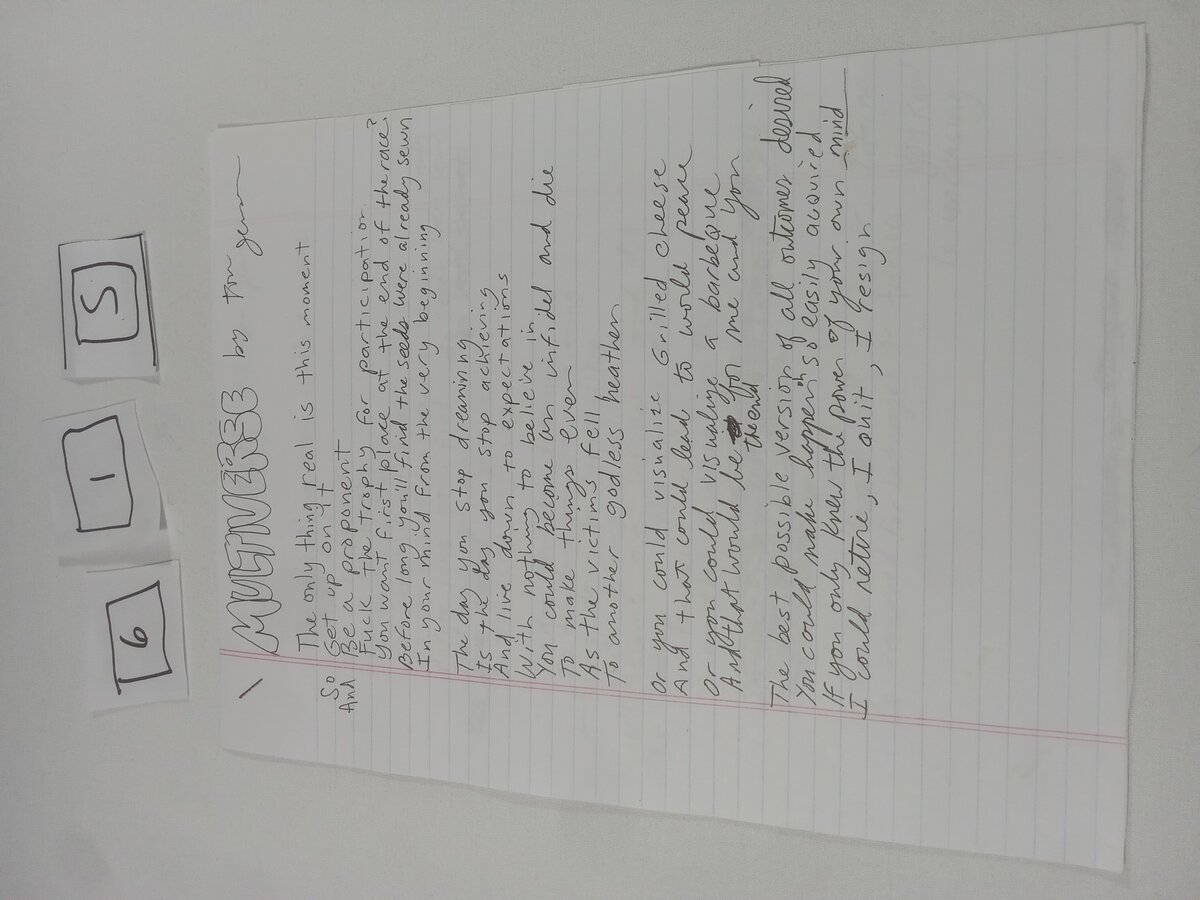 6 1 5
by Tom
The only thing real is this moment
So Get up on it
And Be a proponent
Fuck the trophy for participation
You want first place at the end of the race?
Before long you'll find the seeds were already sewn
In your mind from the very beginning
The day you stop dreaming
Is the day you stop achieving
And live down to expectations
With nothing to believe in
You could become an infidel and die
To make things even
As the victims fell
To another godless heathen
Or you could visualize Grilled cheese
And that could lead to would peace
Or you could visualize a barbeque
And that would be the end for me and you
The best possible version of all outcomes desired
You could make happen oh so easily acquired
If you only knew the power of your own mind
I could retire, I quit, I resign